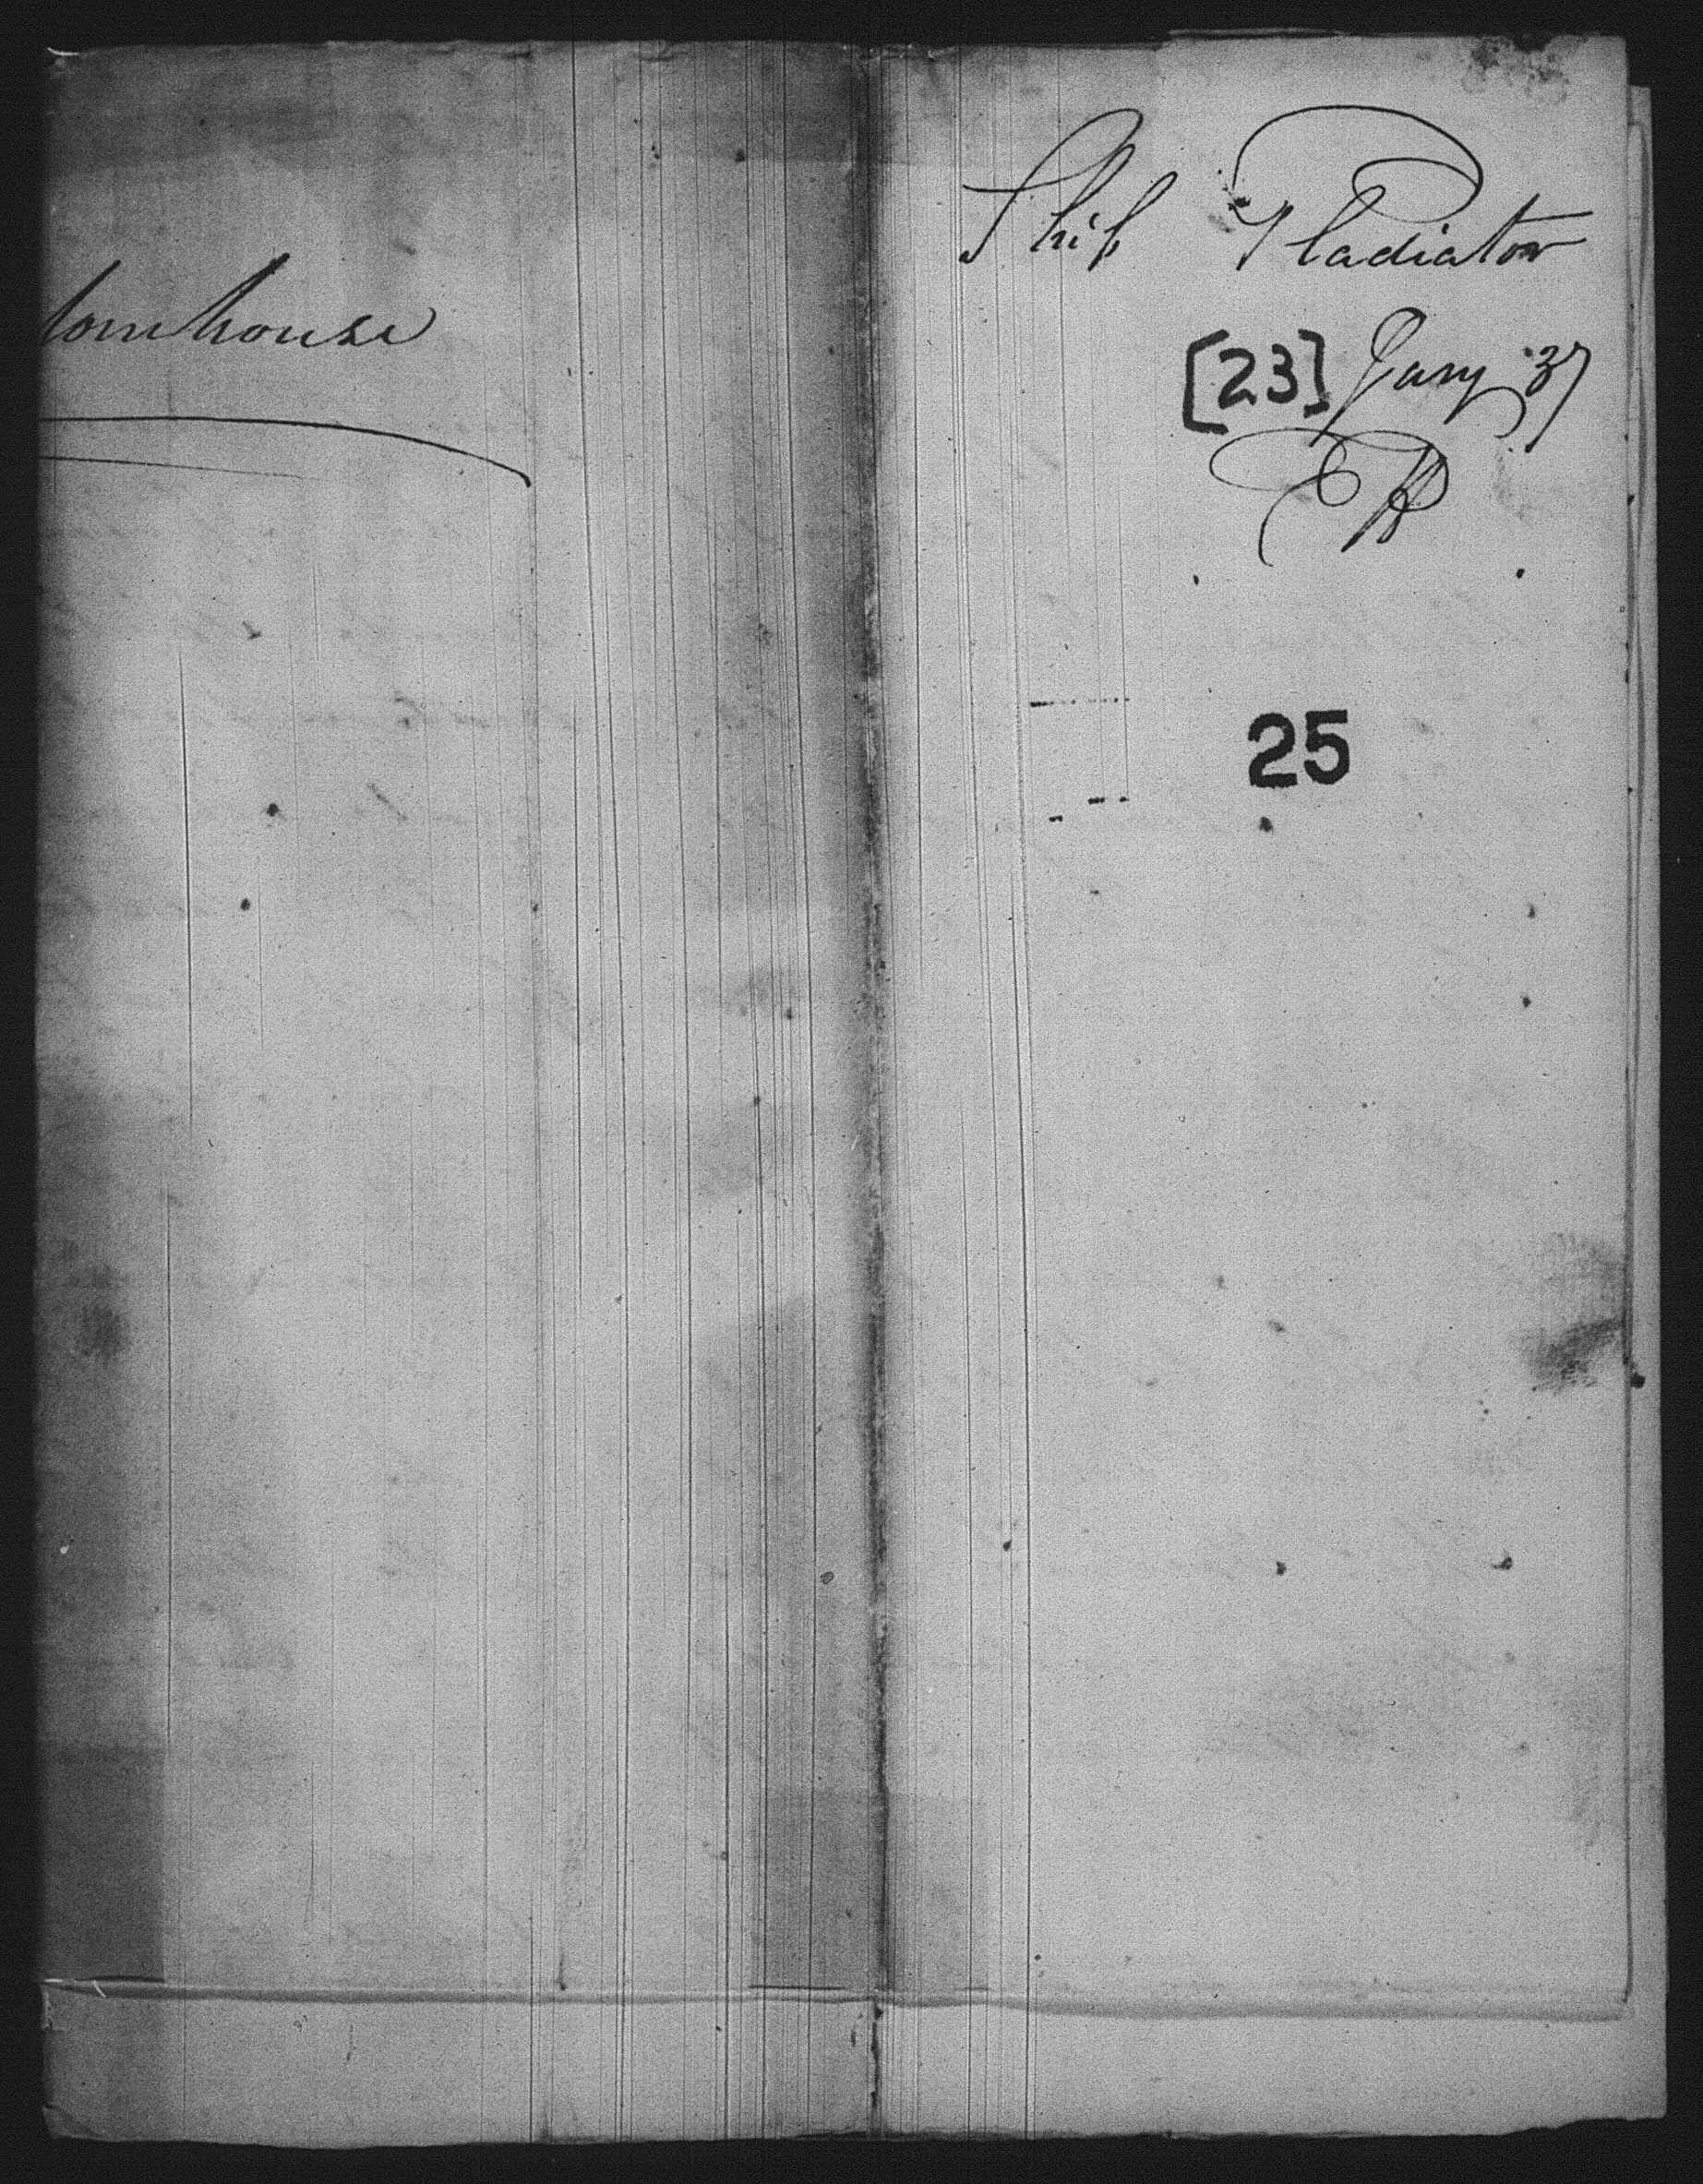 tomhouse
Ship Gladiator
[23] Jany 37
25